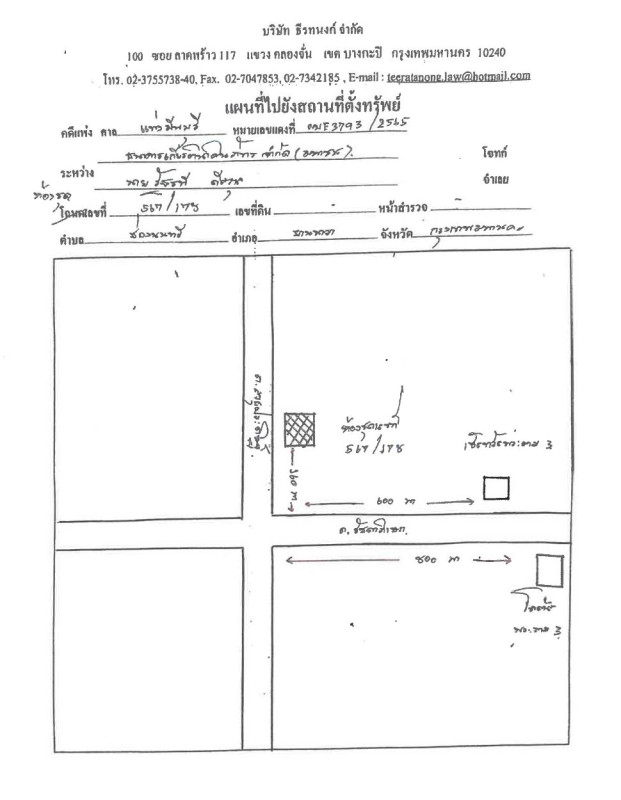 บริษัท ธีรทนงก์ จำกัด
100 ซอย ลาดพร้าว 117 แขวง คลองจั่น เขต บางกะปิ กรุงเทพมหานคร 10240
โทร. 02-3755738-40, Fax. 02-7047853, 02-7342185 , E-mail : teeratanong.law@hotmail.com
แผนที่ไปยังสถานที่ตั้งทรัพย์
คดีแพ่ง ศาล แพ่งมีนบุรี หมายเลขแดงที่ ผบE3793/2565
ธนาคารเกียรตินาคินภัทร จำกัด (มหาชน) โจทก์
ระหว่าง
นาย จำเลย
ห้องชุด
โฉนดเลขที่ 567/178 เลขที่ดิน - หน้าสำรวจ -
ตำบล ช่องนนทรี อำเภอ ยานนาวา จังหวัด กรุงเทพมหานคร
ถ.
ห้องชุดเลขที่
567/178
เซ็นทรัลพระราม 3
360 m
600 m
ถ. รัชดาภิเษก
800 m
โลตัส
พระราม 3